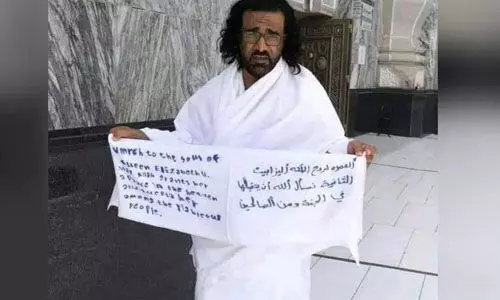 umrah to the soul of
Queen Elizabeth II,
May Allah grants her
a place in the heaven
and accepts her
among the righteous
people.
العمرة لروح الملكة اليزابيث
الثانية نسأل الله أن يتقبلها
في الجنة ومن الصالحين